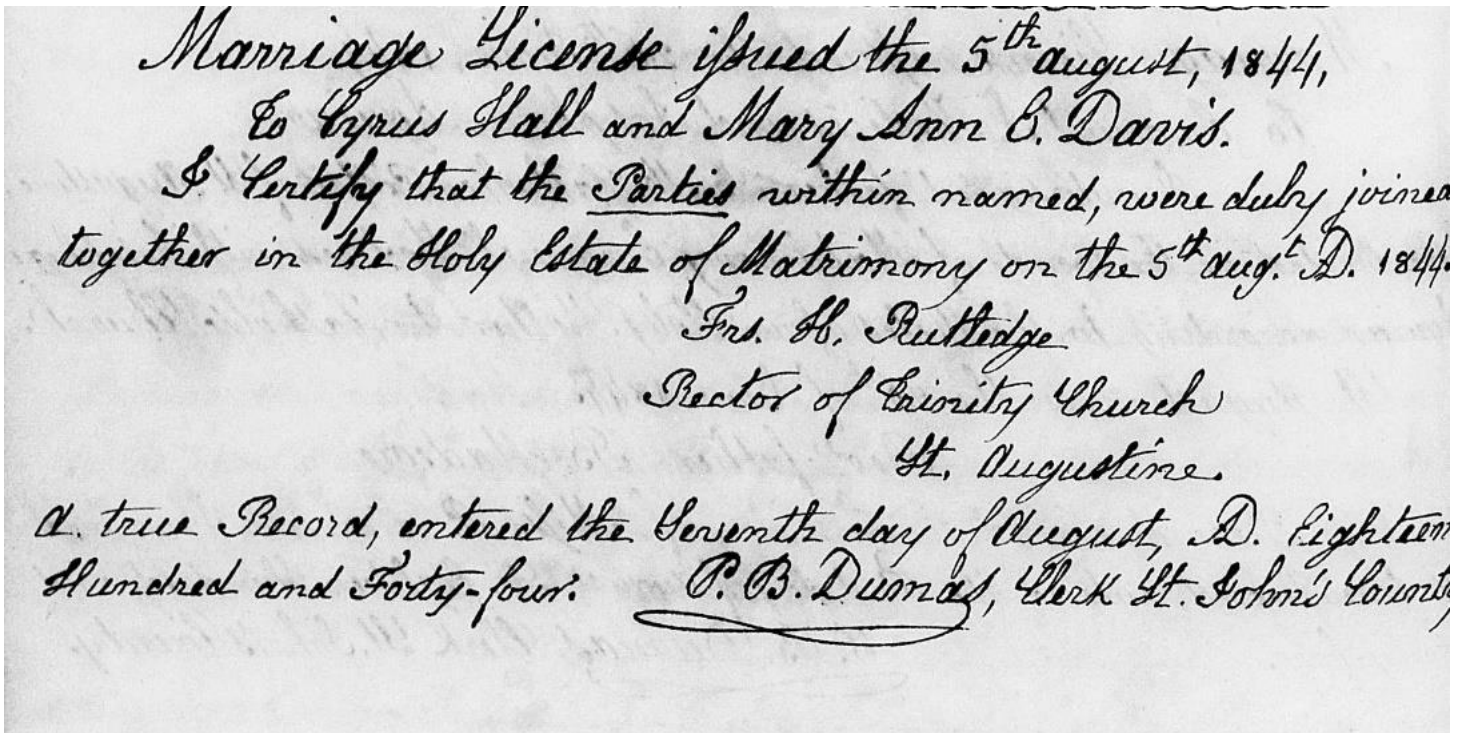 Marriage License issued the 5th August, 1844,
To Cyrus Hall and Mary Ann E. Davis.
I Certify that the Parties within named, were duly joined
together in the Holy Estate of Matrimony on the 5th Aug.t A.D. 1844.
Frs. H. Rutledge
Rector of Trinity Church
St. Augustine.
A true Record, entered the Seventh day of August, A.D. Eighteen
Hundred and Forty-four. P. B. Dumas, Clerk St. John's County